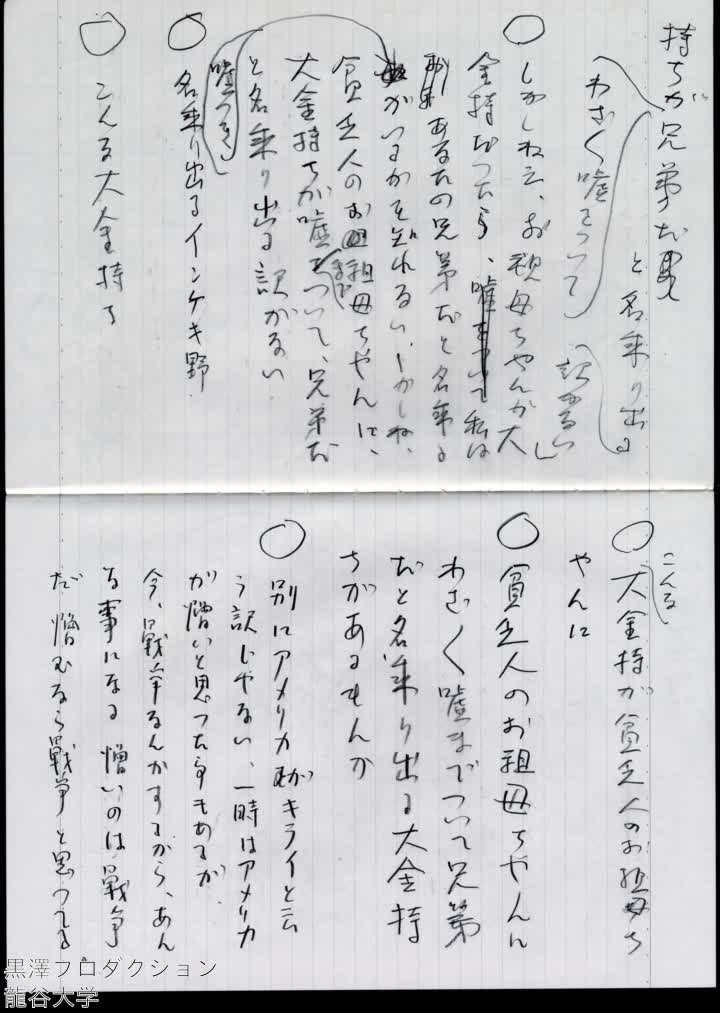 持ちが兄弟だ
と名乗り出る
わざ〱嘘をついて
訳がない
○しかしねえ、お祖母ちやんが大
金持だつたら、私は
あなたの兄弟だと名乗る
がいるかも知れない、しかしね、
貧乏人のお祖母ちやんに、
大金持ちが嘘をついて、兄弟だ
まで
と名乗り出る訳がない
嘘つき
○名乗り出るインケキ野
○こんな大金持ち
こんな
○大金持が貧乏人のお祖母ち
やんに
○貧乏人のお祖母ちやんに
わざ〱嘘までついて兄弟
だと名乗り出る大金持
ちがあるもんか
○別にアメリカがキライと云
う訳じやない、一時はアメリカ
が憎いと思つた事もあるが
今、戦争なんかするから、あん
な事になる 憎いのは戦争
だ 憎むなら戦争と思つてる
黒澤プロダクション
龍谷大学